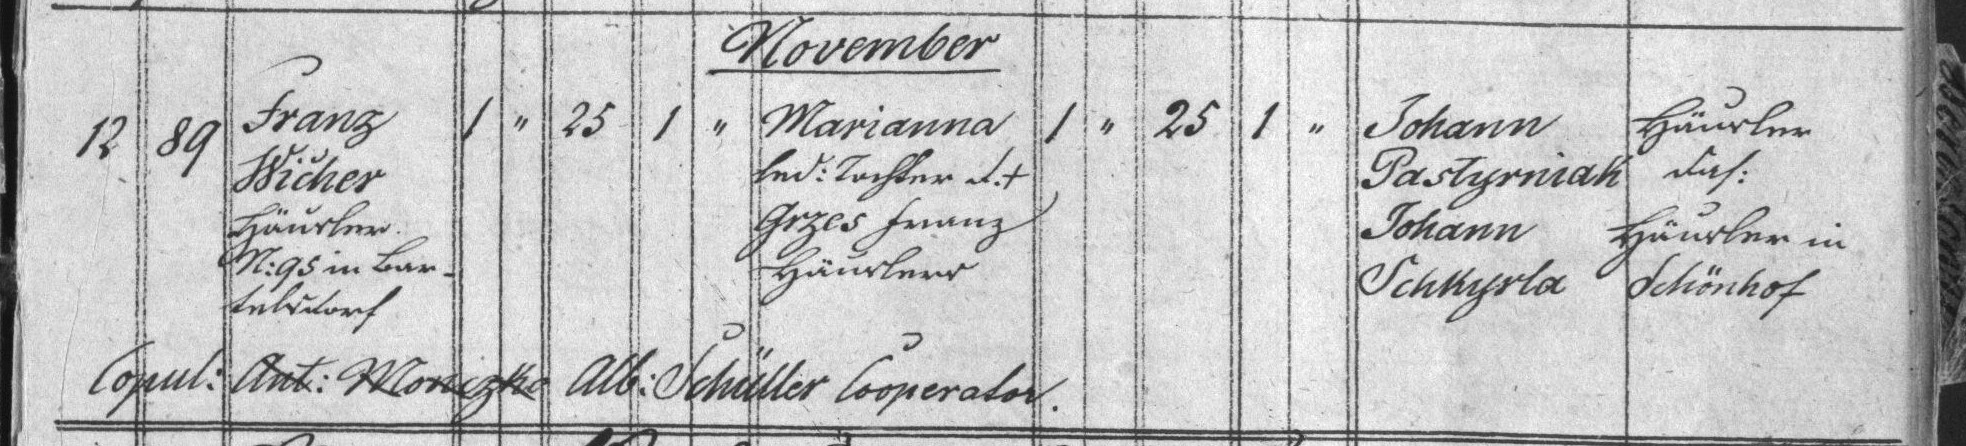 November
12 89 Franz 1 " 25 1 " Marianna 1 " 25 1 " Johann Häusler
Wicher led: Tochter d. + Pastyrniak das:
Häusler Grzes Franz Johann Häusler in
N: 95 in Bar- Häuslers Schkyrla Schönhof
telsdorf
Copul: Ant: Moniczko Alb: Schüller Cooperator.